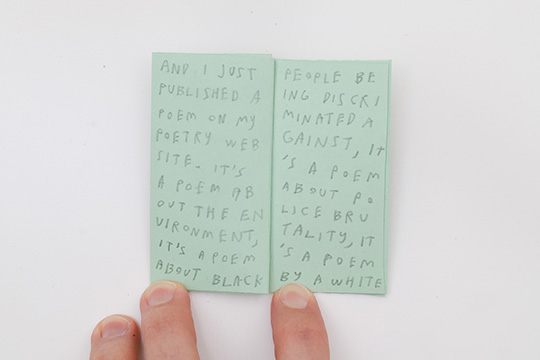 AND I JUST
PUBLISHED A
POEM ON MY
POETRY WEB
SITE. IT'S
A POEM AB
OUT THE EN
VIRONMENT,
IT'S A POEM
ABOUT BLACK
PEOPLE BE
ING DISCRI
MINATED A
GAINST, IT
'S A POEM
ABOUT PO
LICE BRU
TALITY, IT
'S A POEM
BY A WHITE